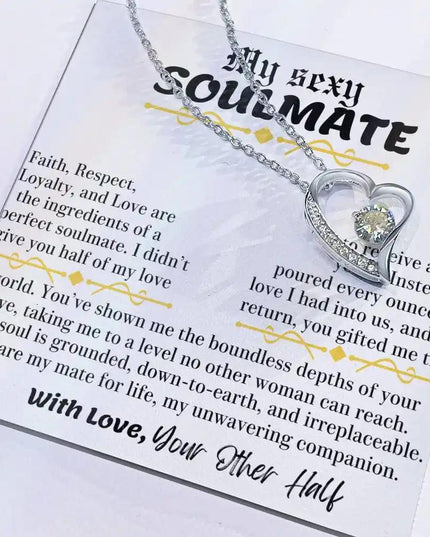 My sexy
SOULMATE
Faith, Respect,
Loyalty, and Love are
the ingredients of a
perfect soulmate. I didn't
give you half of my love
to receive a
poured every ounce
love I had into us, and
return, you gifted me t
world. You've shown me the boundless depths of your
taking me to a level no other woman can reach.
soul is grounded, down-to-earth, and irreplaceable.
are my mate for life, my unwavering companion.
With Love, Your Other Half